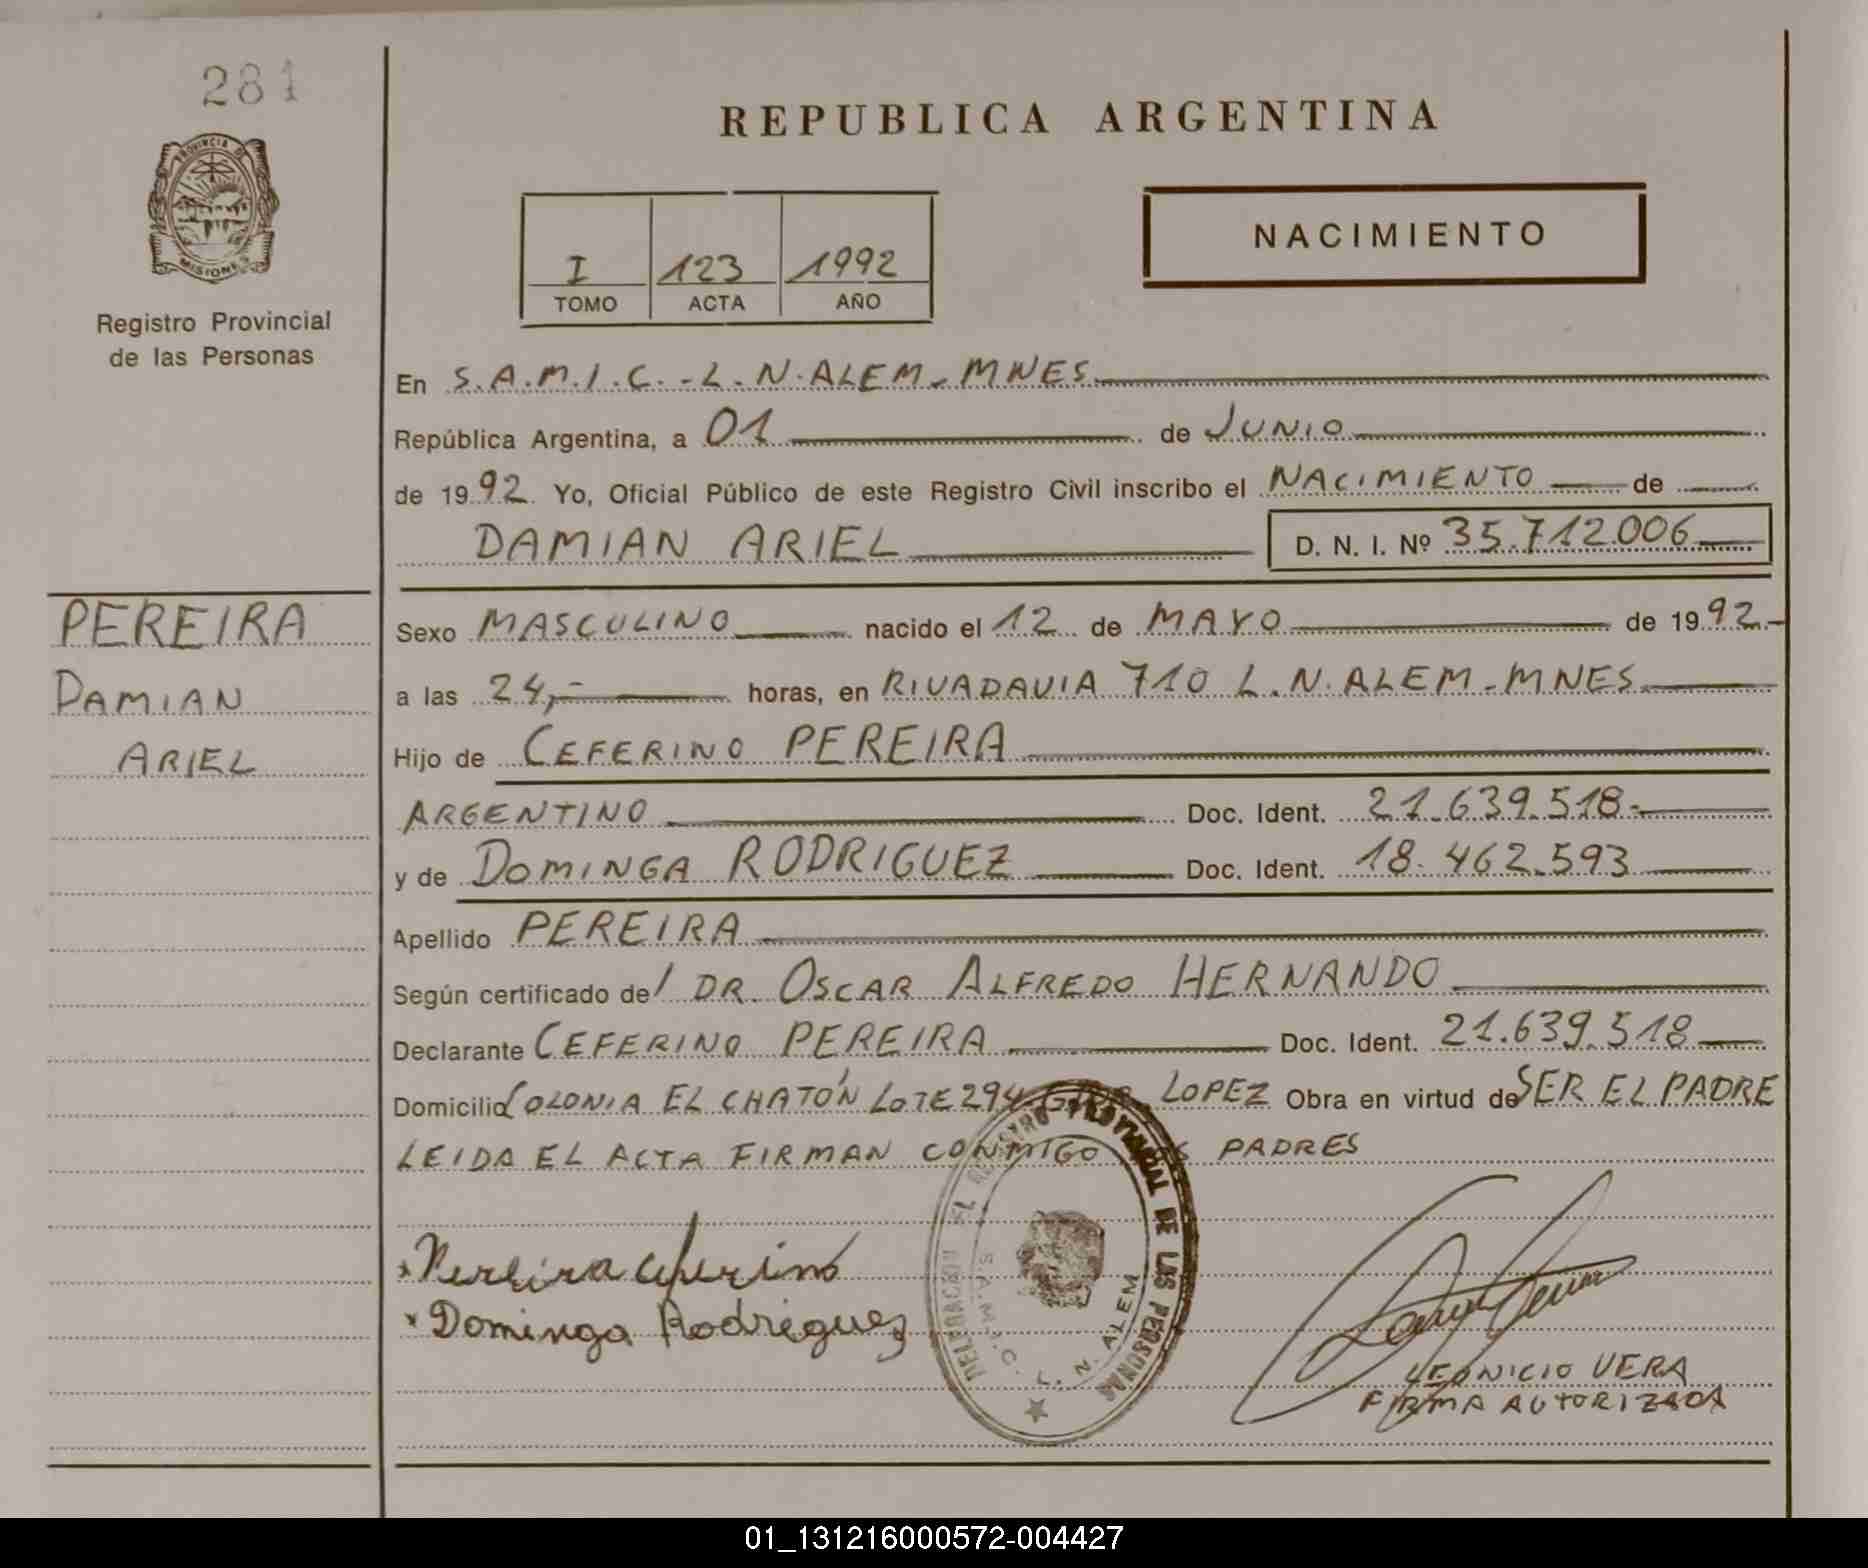 281
PROVINCIA DE
MISIONES
Registro Provincial
de las Personas
PEREIRA
DAMIAN
ARIEL
REPUBLICA ARGENTINA
I 123 1992
TOMO ACTA AÑO
NACIMIENTO
En S.A.M.I.C.-L.N.ALEM-MNES
República Argentina, a 01 de JUNIO
de 1992 Yo, Oficial Público de este Registro Civil inscribo el NACIMIENTO de
DAMIAN ARIEL D. N. I. Nº 35.712.006
Sexo MASCULINO nacido el 12 de MAYO de 1992.-
a las 24,- horas, en RIVADAVIA 710 L.N.ALEM-MNES
Hijo de CEFERINO PEREIRA
ARGENTINO Doc. Ident. 21.639.518-
y de DOMINGA RODRIGUEZ Doc. Ident. 18.462.593
Apellido PEREIRA
Según certificado de/ DR. OSCAR ALFREDO HERNANDO
Declarante CEFERINO PEREIRA Doc. Ident. 21.639.518
Domicilio COLONIA EL CHATÓN LOTE 294 LOPEZ Obra en virtud de SER EL PADRE
LEIDA EL ACTA FIRMAN CONMIGO PADRES
Pereira Ceferino
Dominga Rodriguez
DELEGACION EL REGISTRO PROVINCIAL DE LAS PERSONAS
S.A.M.I.C. L. N. ALEM
LEONICIO VERA
FIRMA AUTORIZADA
01_131216000572-004427